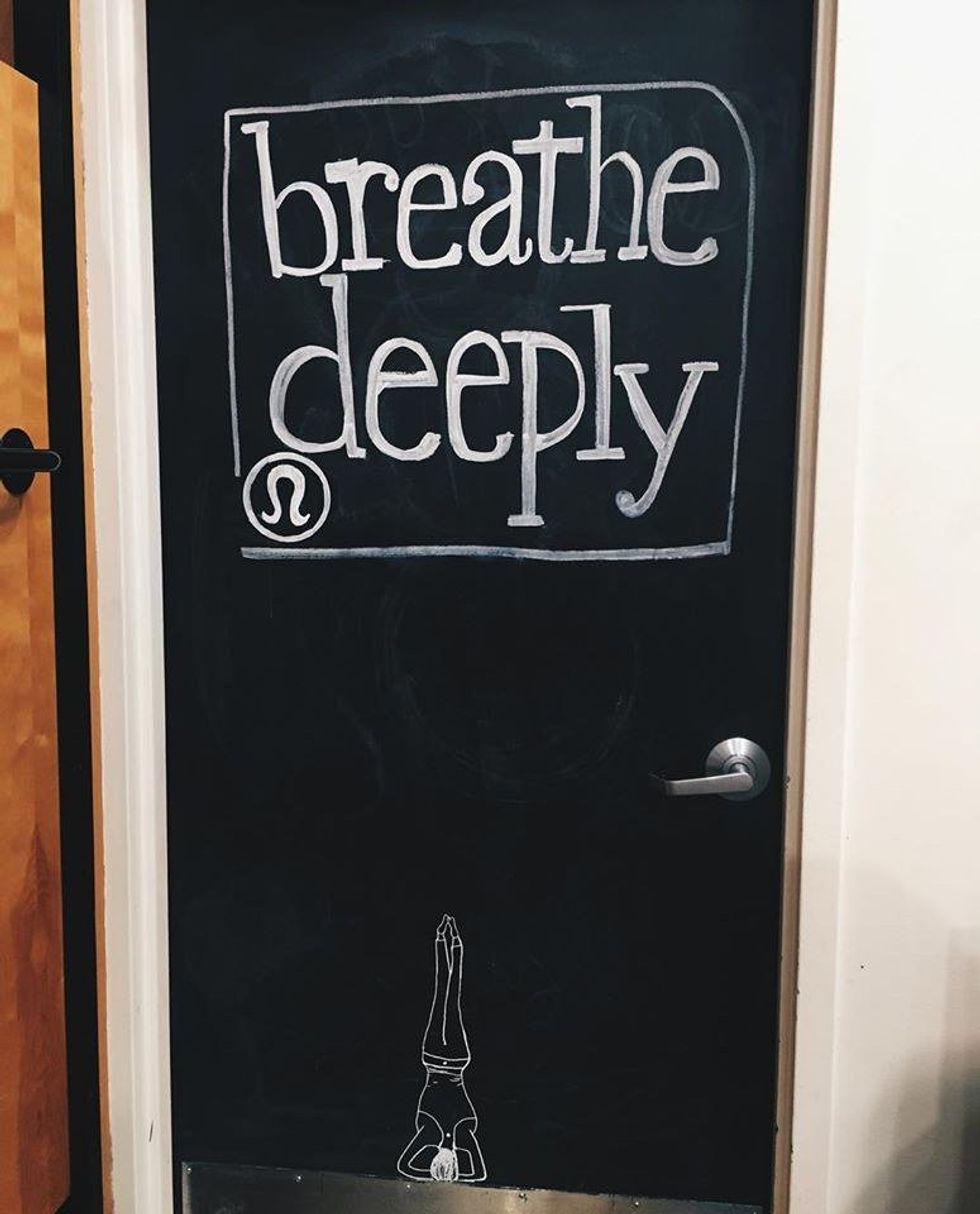 breathe
deeply